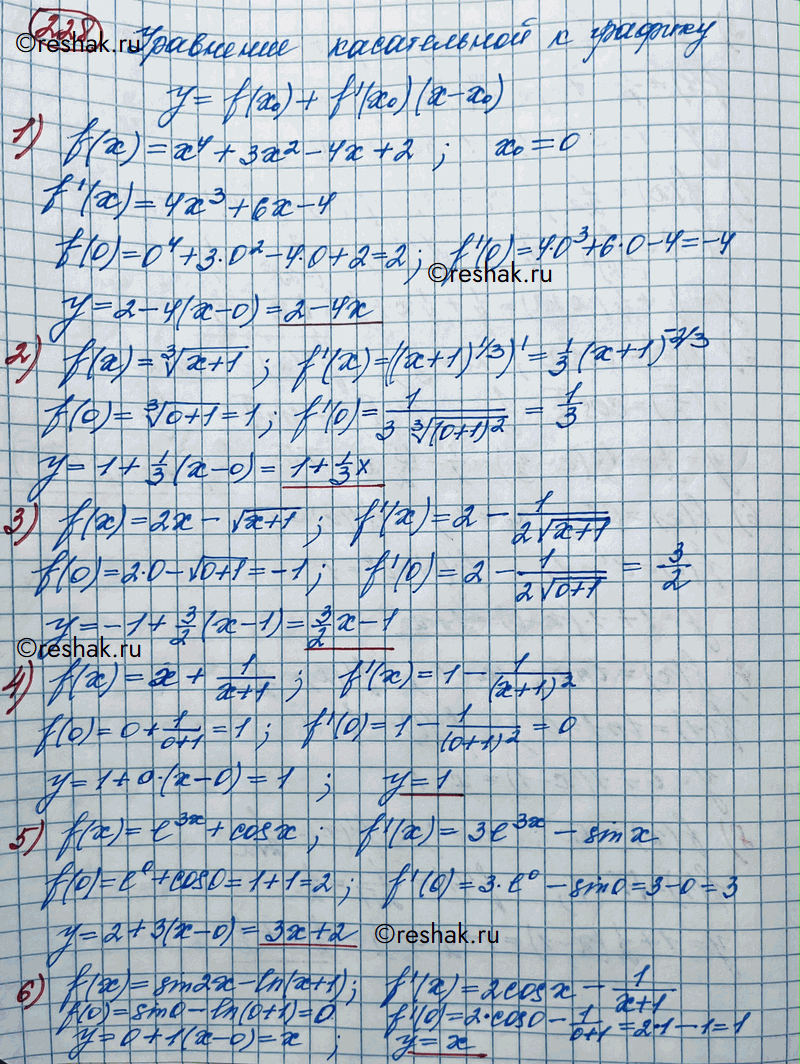 228 Уравнение касательной к графику
©reshak.ru
y = f(x₀) + f'(x₀)(x-x₀)
1) f(x) = x⁴ + 3x² - 4x + 2 ; x₀ = 0
f'(x) = 4x³ + 6x - 4
f(0) = 0⁴ + 3·0² - 4·0 + 2 = 2; f'(0) = 4·0³ + 6·0 - 4 = -4
©reshak.ru
y = 2 - 4(x-0) = 2 - 4x
2) f(x) = ∛(x+1) ; f'(x) = ((x+1)^1/3)' = 1/3 (x+1)^-2/3
f(0) = ∛(0+1) = 1; f'(0) = 1/(3 ∛((0+1)²)) = 1/3
y = 1 + 1/3 (x-0) = 1 + 1/3 x
3) f(x) = 2x - √(x+1) ; f'(x) = 2 - 1/(2√(x+1))
f(0) = 2·0 - √(0+1) = -1; f'(0) = 2 - 1/(2√(0+1)) = 3/2
y = -1 + 3/2 (x-1) = 3/2 x - 1
©reshak.ru
4) f(x) = x + 1/(x+1) ; f'(x) = 1 - 1/(x+1)²
f(0) = 0 + 1/(0+1) = 1; f'(0) = 1 - 1/(0+1)² = 0
y = 1 + 0·(x-0) = 1 ; y = 1
5) f(x) = e^3x + cosx ; f'(x) = 3e^3x - sinx
f(0) = e⁰ + cos0 = 1+1 = 2; f'(0) = 3·e⁰ - sin0 = 3-0 = 3
y = 2 + 3(x-0) = 3x + 2 ©reshak.ru
6) f(x) = sin2x - ln(x+1); f'(x) = 2cosx - 1/(x+1)
f(0) = sin0 - ln(0+1) = 0 f'(0) = 2·cos0 - 1/(0+1) = 2·1 - 1 = 1
y = 0 + 1(x-0) = x ; y = x